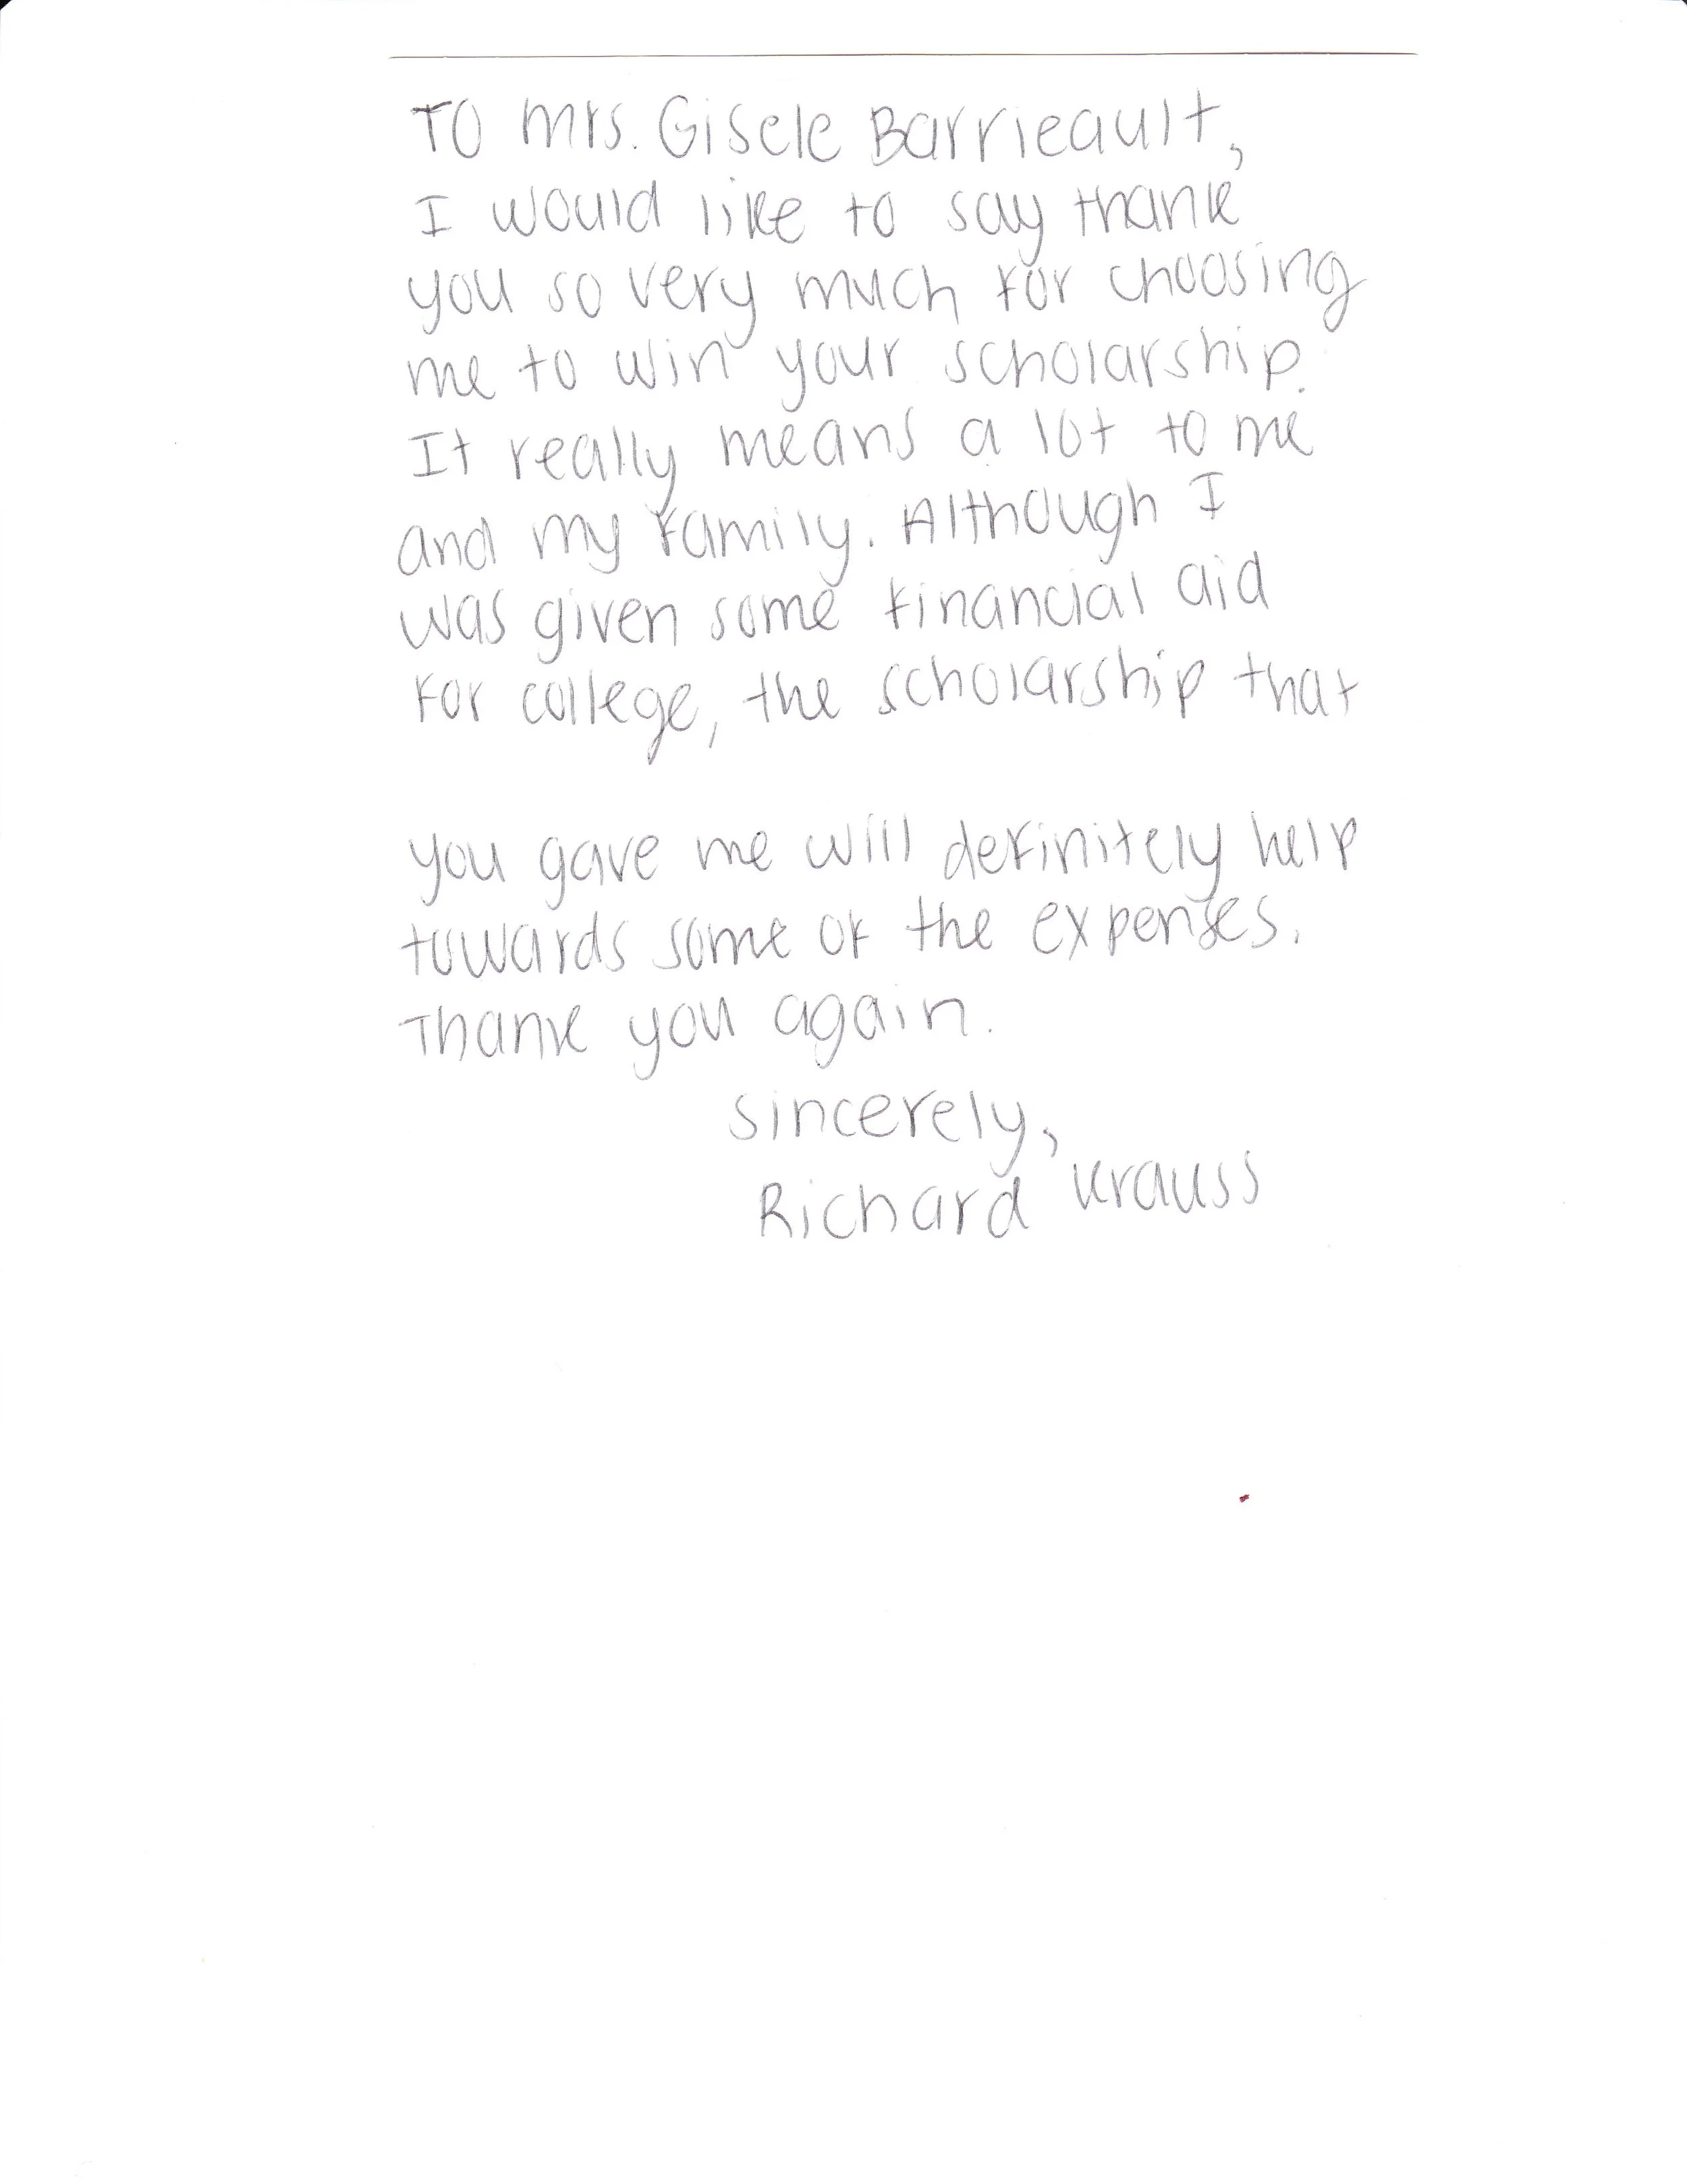 To Mrs. Gisele Barrieault,
I would like to say thank
you so very much for choosing
me to win your scholarship.
It really means a lot to me
and my family. Although I
was given some financial aid
for college, the scholarship that
you gave me will definitely help
towards some of the expenses.
Thank you again.
Sincerely,
Richard Krauss